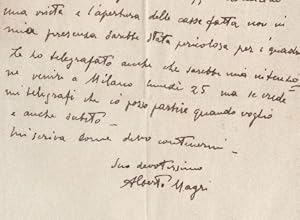 una visita e l'apertura delle casse fatta non in
mia presenza sarebbe stata pericolosa per i quadri
Le ho telegrafato anche che sarebbe mia intenzio
ne venire a Milano lunedì 25 ma se crede
mi telegrafi che io posso partire quando voglio
e anche subito –
Mi scriva come devo contenermi –
Suo devotissimo
Alberto Magri